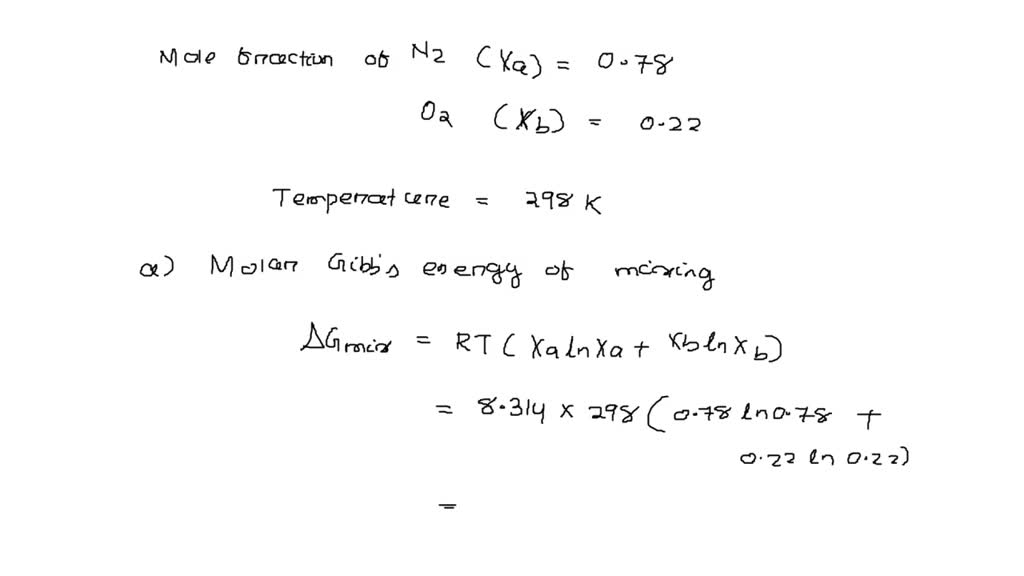 Mole fraction of N2 (Xa) = 0.78
O2 (Xb) = 0.22
Temperature = 298 K
a) Molar Gibb's energy of mixing
ΔGmix = RT ( Xa ln Xa + Xb ln Xb )
= 8.314 × 298 ( 0.78 ln 0.78 +
0.22 ln 0.22 )
=